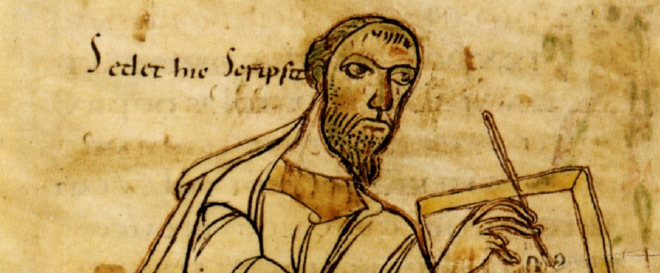 Sedet hic Scripsit